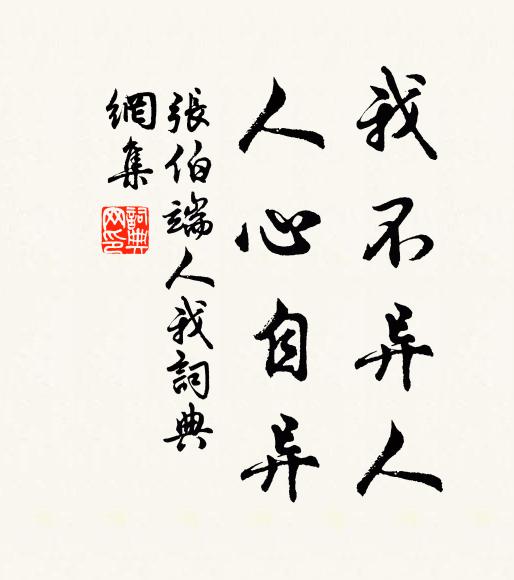 我不异人
人心自异
張伯端人我詞典
網集
詞典
网印